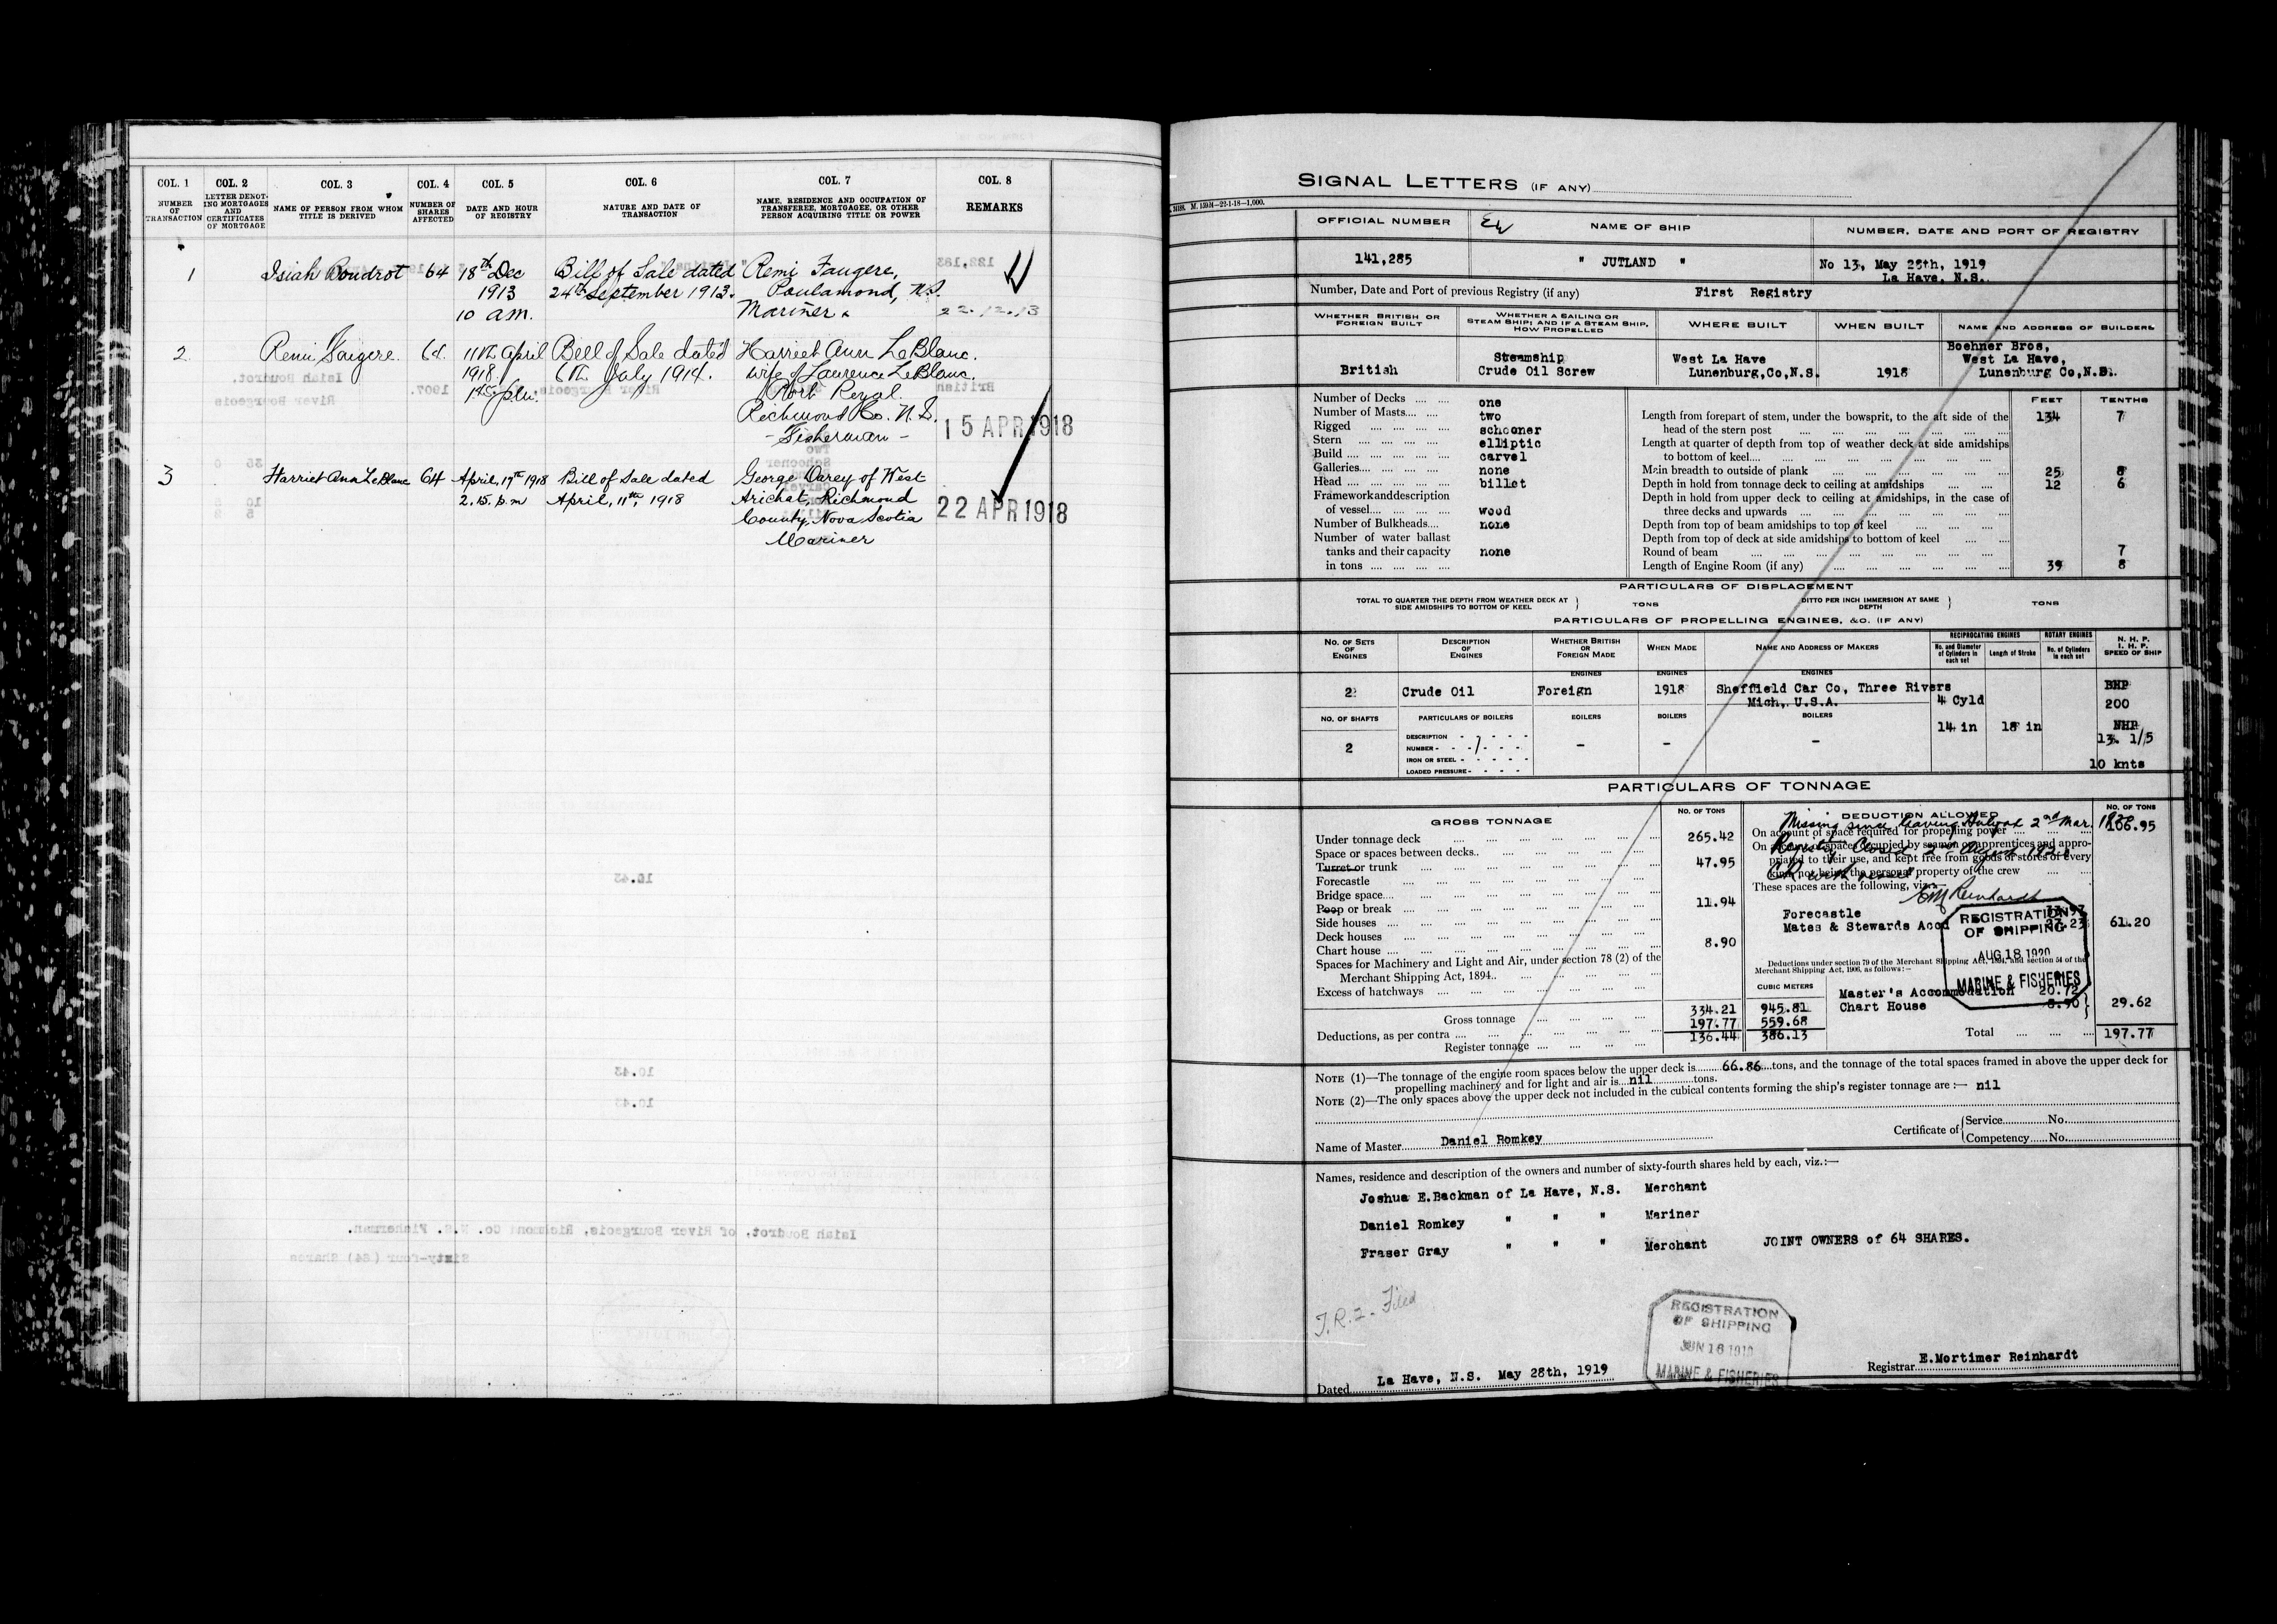 COL. 1 COL. 2 COL. 3 COL. 4 COL. 5 COL. 6 COL. 7 COL. 8
NUMBER OF TRANSACTION
LETTER DENOTING MORTGAGES AND CERTIFICATES OF MORTGAGE
NAME OF PERSON FROM WHOM TITLE IS DERIVED
NUMBER OF SHARES AFFECTED
DATE AND HOUR OF REGISTRY
NATURE AND DATE OF TRANSACTION
NAME, RESIDENCE AND OCCUPATION OF TRANSFEREE, MORTGAGEE, OR OTHER PERSON ACQUIRING TITLE OR POWER
REMARKS
1 Isiah Boudrot 64 18th Dec Bill of Sale dated Remi Faugere,
1913 24th September 1913. Poulamond, N.S.
10 a.m. Mariner 22.12.13
2. Remi Faugere. 64. 11th April Bill of Sale dated Harriet Ann LeBlanc.
1918 6th July 1914. wife of Laurence LeBlanc.
Port Royal.
Richmond Co. N.S.
- Fisherman - 15 APR 1918
3 Harriet Ann LeBlanc 64 April, 17th 1918 Bill of Sale dated George Darey of West
2.15. p.m April, 11th, 1918 Arichat, Richmond
County, Nova Scotia 22 APR 1918
Mariner
SIGNAL LETTERS (IF ANY)
OFFICIAL NUMBER NAME OF SHIP NUMBER, DATE AND PORT OF REGISTRY
141,285 " JUTLAND " No 13, May 28th, 1919
La Have, N.S.
Number, Date and Port of previous Registry (if any) First Registry
WHETHER BRITISH OR FOREIGN BUILT
WHETHER A SAILING OR STEAM SHIP; AND IF A STEAM SHIP, HOW PROPELLED
WHERE BUILT
WHEN BUILT
NAME AND ADDRESS OF BUILDERS
British
Steamship
Crude Oil Screw
West La Have
Lunenburg,Co,N.S.
1918
Boehner Bros,
West La Have,
Lunenburg Co,N.S.
Number of Decks .... .... one
Number of Masts.... .... two
Rigged .... .... .... .... schooner
Stern .... .... .... .... elliptic
Build .... .... .... .... carvel
Galleries.... .... .... .... none
Head .... .... .... .... billet
Framework and description
of vessel.... .... .... .... wood
Number of Bulkheads.... none
Number of water ballast
tanks and their capacity none
in tons .... .... .... ....
FEET TENTHS
Length from forepart of stem, under the bowsprit, to the aft side of the 134 7
head of the stern post
Length at quarter of depth from top of weather deck at side amidships
to bottom of keel....
Main breadth to outside of plank 25 8
Depth in hold from tonnage deck to ceiling at amidships 12 6
Depth in hold from upper deck to ceiling at amidships, in the case of
three decks and upwards
Depth from top of beam amidships to top of keel
Depth from top of deck at side amidships to bottom of keel
Round of beam 7
Length of Engine Room (if any) 39 8
PARTICULARS OF DISPLACEMENT
TOTAL TO QUARTER THE DEPTH FROM WEATHER DECK AT SIDE AMIDSHIPS TO BOTTOM OF KEEL } TONS
DITTO PER INCH IMMERSION AT SAME DEPTH } TONS
PARTICULARS OF PROPELLING ENGINES, &C. (IF ANY)
NO. OF SETS OF ENGINES
DESCRIPTION OF ENGINES
WHETHER BRITISH OR FOREIGN MADE
WHEN MADE
NAME AND ADDRESS OF MAKERS
RECIPROCATING ENGINES
No. and Diameter of Cylinders in each set
Length of Stroke
ROTARY ENGINES
No. of Cylinders in each set
N. H. P.
I. H. P.
SPEED OF SHIP
ENGINES ENGINES ENGINES
2 Crude Oil Foreign 1918 Sheffield Car Co, Three Rivers BHP
Mich, U.S.A. 4 Cyld 200
NO. OF SHAFTS PARTICULARS OF BOILERS BOILERS BOILERS BOILERS
14 in 18 in NHP
13. 1/5
2
DESCRIPTION
NUMBER
IRON OR STEEL
LOADED PRESSURE
- - -
10 knts
PARTICULARS OF TONNAGE
GROSS TONNAGE NO. OF TONS
Under tonnage deck 265.42
Space or spaces between decks..
Turret or trunk 47.95
Forecastle
Bridge space....
Poop or break 11.94
Side houses
Deck houses
Chart house 8.90
Spaces for Machinery and Light and Air, under section 78 (2) of the
Merchant Shipping Act, 1894..
Excess of hatchways
CUBIC METERS
Gross tonnage 334.21 945.81
Deductions, as per contra 197.77 559.68
Register tonnage 136.44 386.13
DEDUCTION ALLOWED NO. OF TONS
Missing since leaving 2nd Mar. 1920
On account of space required for propelling power 106.95
Registry Closed 2nd August 1920
On account of spaces occupied by seamen or apprentices and appropriated to their use, and kept free from goods or stores of every
kind, not being the personal property of the crew
CR with vessel
These spaces are the following, viz:—
EM Reinhardt
Forecastle 33.97
Mates & Stewards Accd 27.23 61.20
REGISTRATION
OF SHIPPING
AUG 18 1920
MARINE & FISHERIES
Deductions under section 79 of the Merchant Shipping Act, 1894, and section 54 of the
Merchant Shipping Act, 1906, as follows:—
Master's Accommodation 20.72
Chart House 8.90 } 29.62
Total 197.77
NOTE (1)—The tonnage of the engine room spaces below the upper deck is 66.86 tons, and the tonnage of the total spaces framed in above the upper deck for
propelling machinery and for light and air is nil tons.
NOTE (2)—The only spaces above the upper deck not included in the cubical contents forming the ship's register tonnage are :— nil
Name of Master Daniel Romkey
Certificate of { Service No.
Competency No.
Names, residence and description of the owners and number of sixty-fourth shares held by each, viz.:—
Joshua E.Backman of La Have, N.S. Merchant
Daniel Romkey " " " Mariner
Fraser Gray " " " Merchant JOINT OWNERS of 64 SHARES.
T.R.2 - Filed
REGISTRATION
OF SHIPPING
JUN 16 1919
MARINE & FISHERIES
Dated La Have, N.S. May 28th, 1919
Registrar E.Mortimer Reinhardt